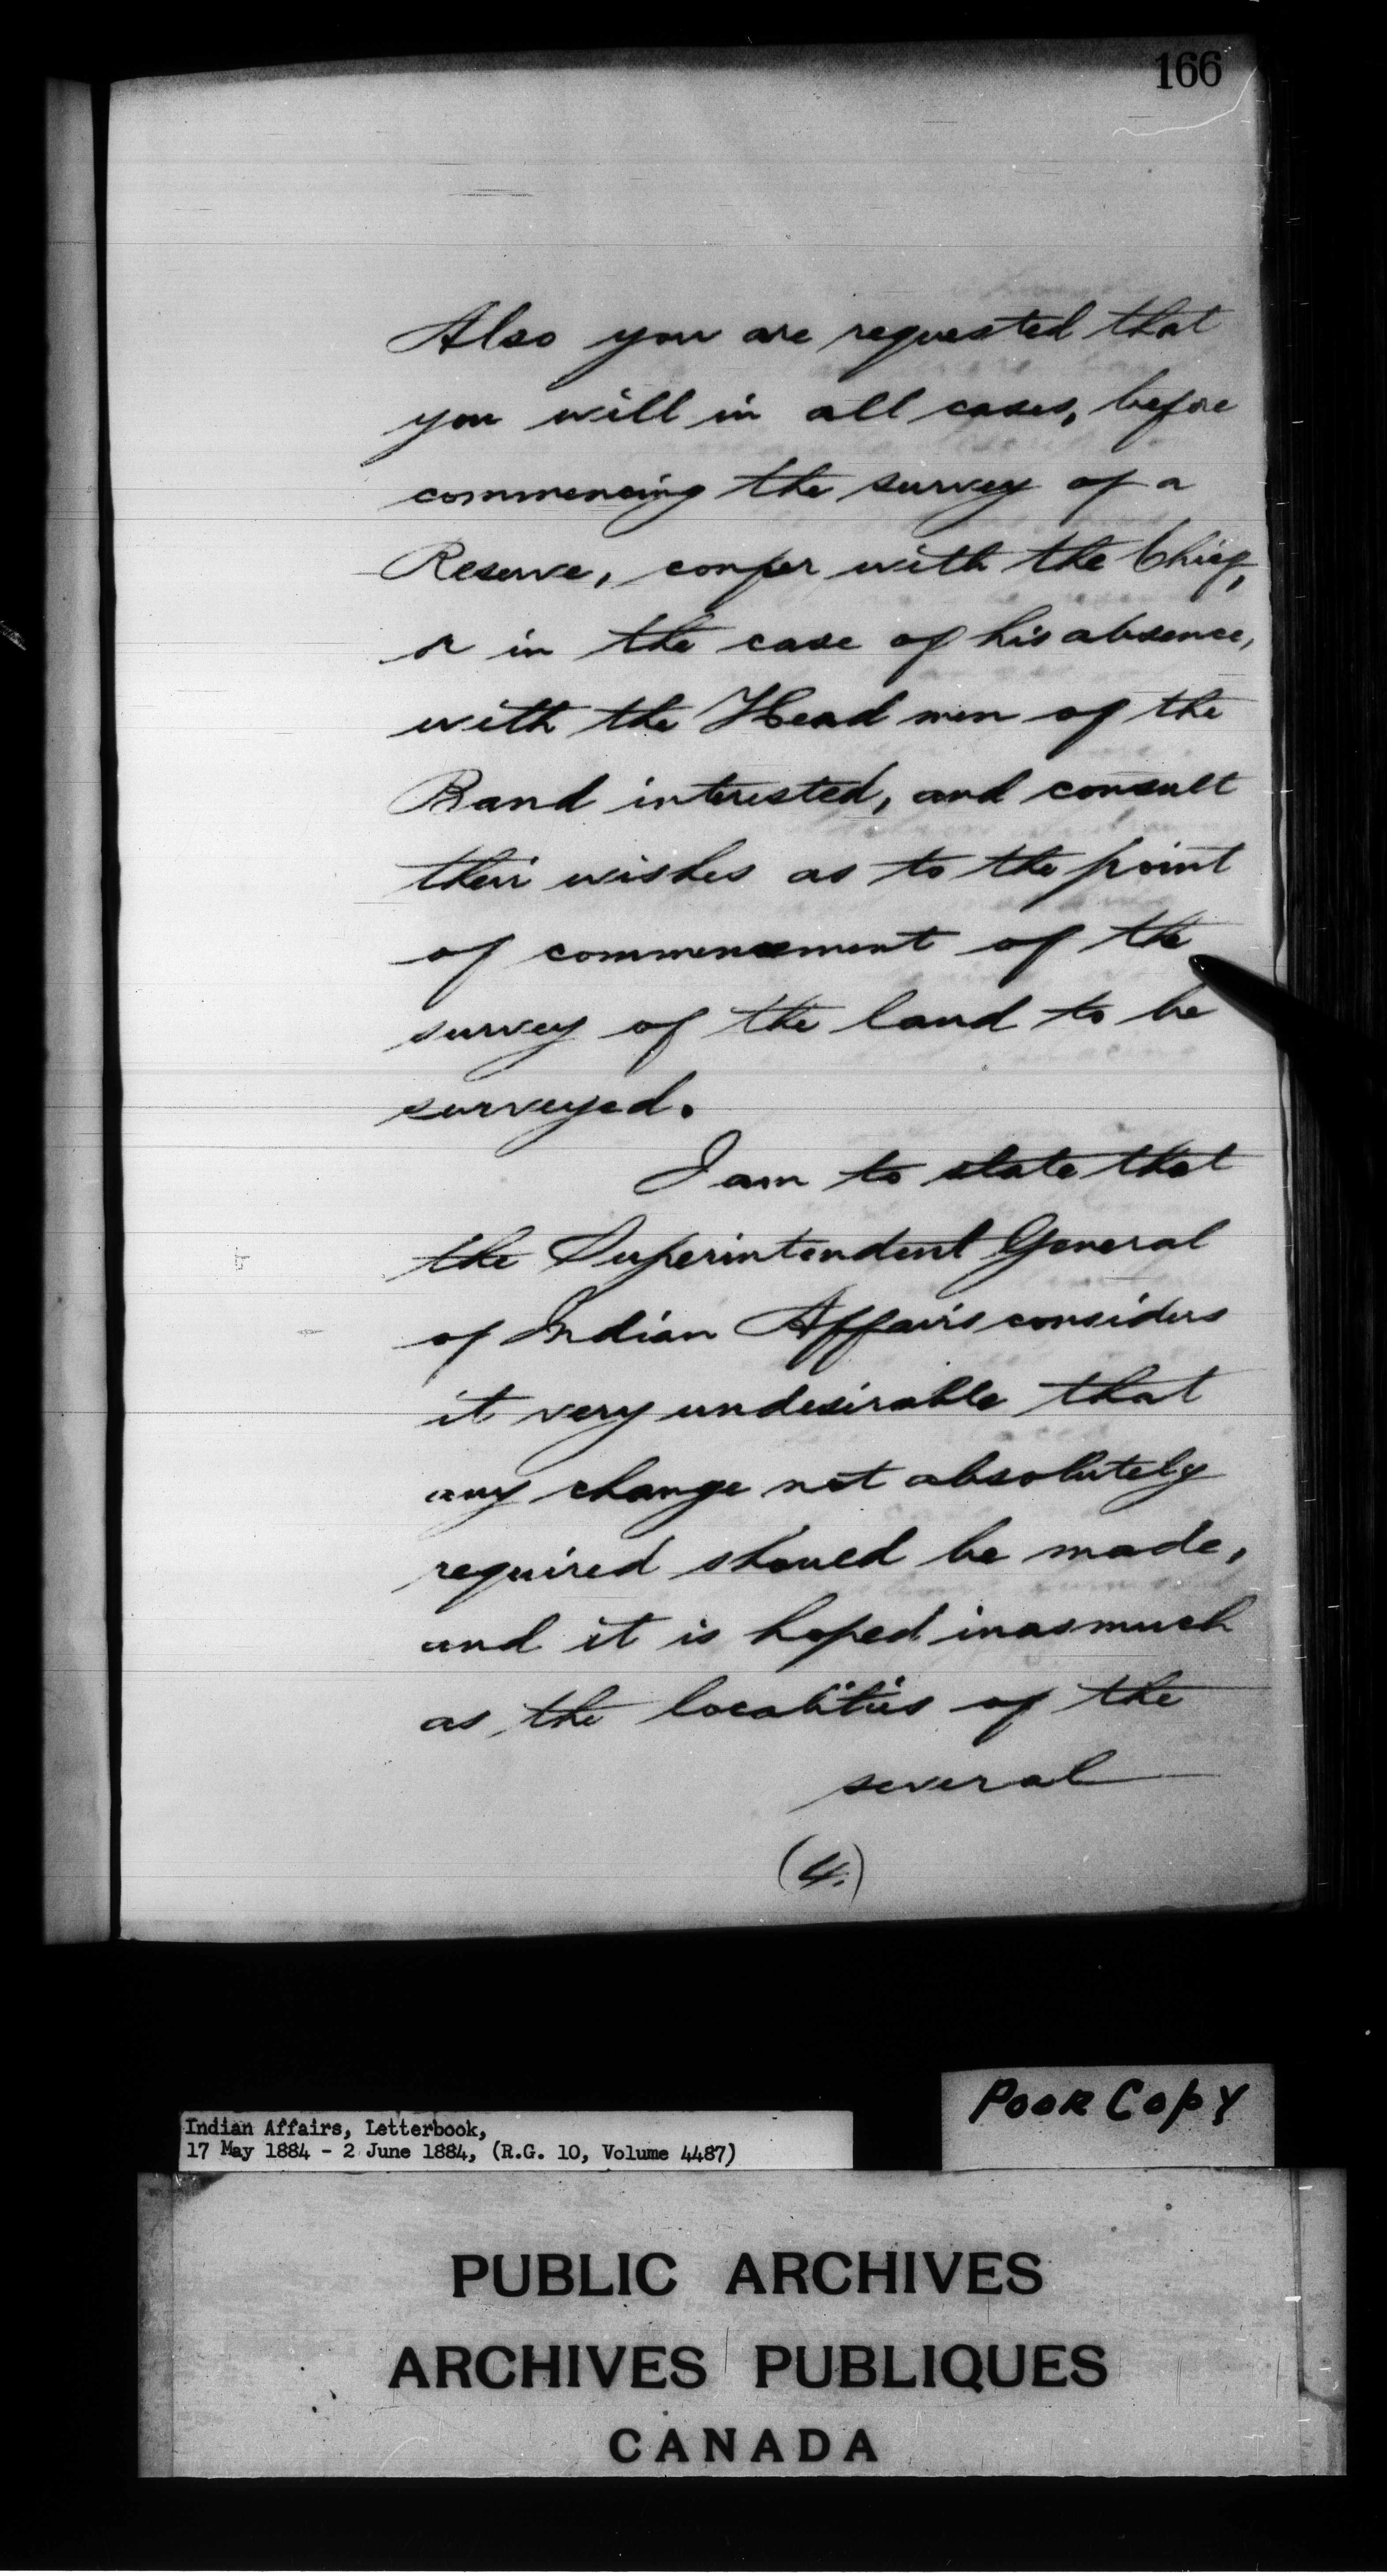 166
Also you are requested that
you will in all cases, before
commencing the survey of a
Reserve, confer with the Chief,
or in the case of his absence,
with the Head men of the
Band interested, and consult
their wishes as to the point
of commencement of the
survey of the land to be
surveyed.
I am to state that
the Superintendent General
of Indian Affairs considers
it very undesirable that
any change not absolutely
required should be made,
and it is hoped inasmuch
as the localities of the
several
(4.)
POOR COPY
Indian Affairs, Letterbook,
17 May 1884 - 2 June 1884, (R.G. 10, Volume 4487)
PUBLIC ARCHIVES
ARCHIVES PUBLIQUES
CANADA